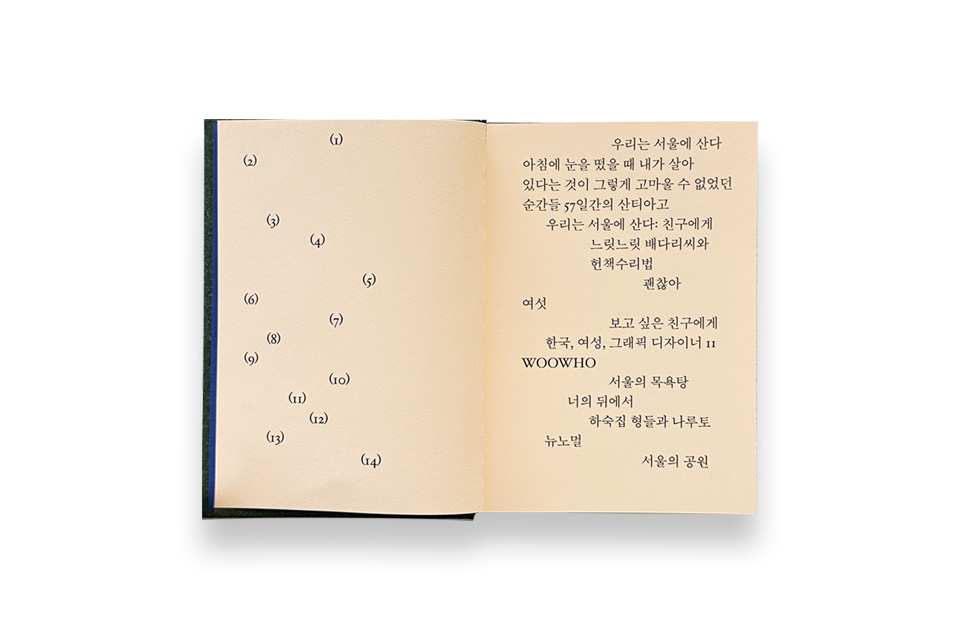 (1)
(2)
(3)
(4)
(5)
(6)
(7)
(8)
(9)
(10)
(11)
(12)
(13)
(14)
우리는 서울에 산다
아침에 눈을 떴을 때 내가 살아
있다는 것이 그렇게 고마울 수 없었던
순간들 57일간의 산티아고
우리는 서울에 산다: 친구에게
느릿느릿 배다리씨와
헌책수리법
괜찮아
여섯
보고 싶은 친구에게
한국, 여성, 그래픽 디자이너 11
WOOWHO
서울의 목욕탕
너의 뒤에서
하숙집 형들과 나루토
뉴노멀
서울의 공원